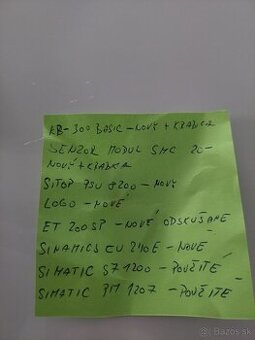 KB-300 BASIC - NOVÝ + KRABICA
SENZOR MODUL SMC 20 -
NOVÝ + KRABICA
SITOP PSU 8200 - NOVÝ
LOGO - NOVÉ
ET 200SP - NOVÉ ODSKÚŠANÉ
SINAMICS CU 240E - NOVÉ
SIMATIC S7 1200 - POUŽITÉ
SIMATIC PM 1207 - POUŽITÉ
bazos.sk